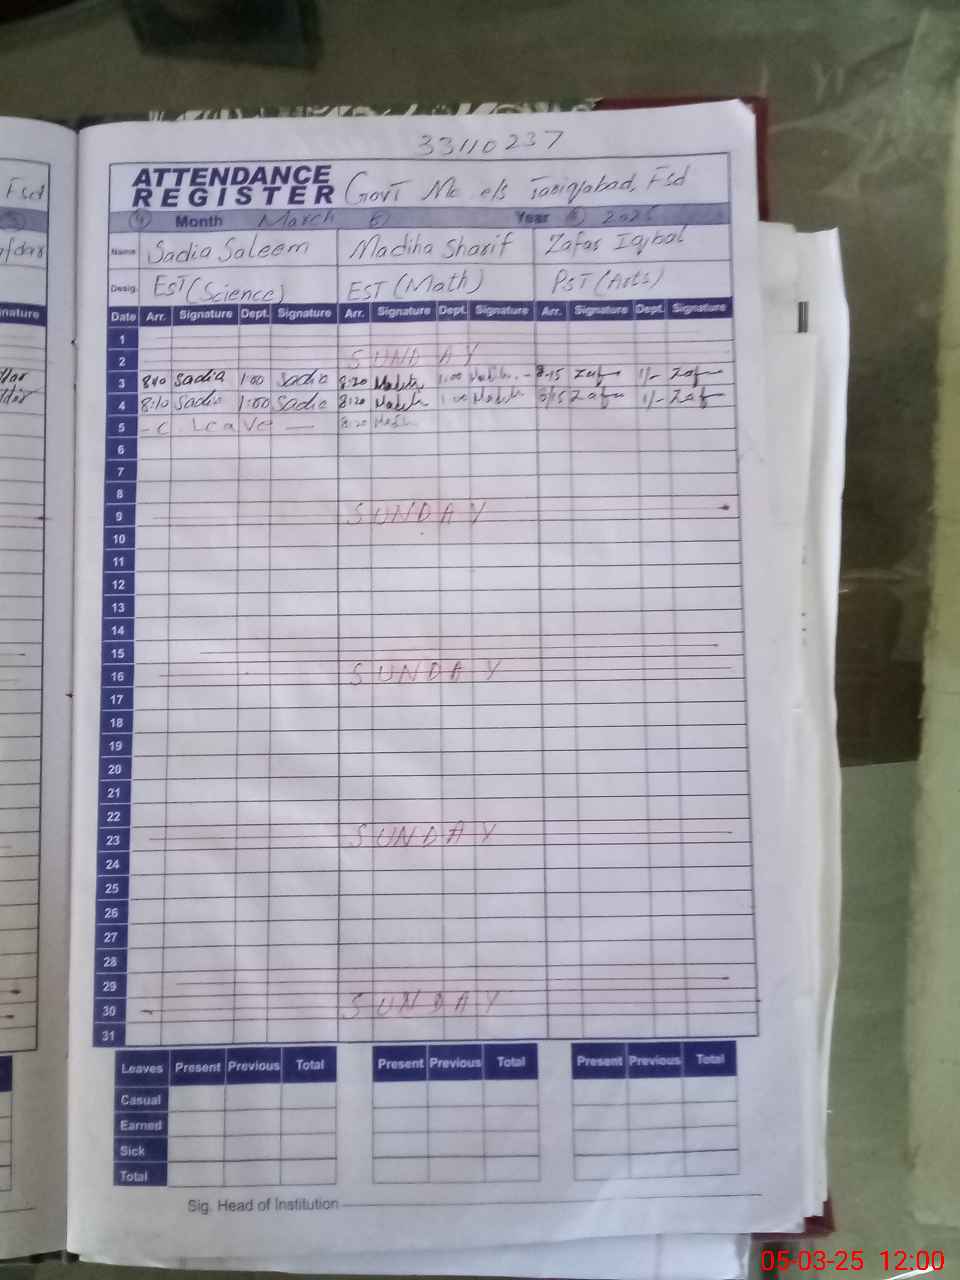 33110237
Fsd
ATTENDANCE
REGISTER Govt Mc e/s Tariqabad, Fsd
Month March Year 2025
Name Sadia Saleem Madiha Sharif Zafar Iqbal
Desig. EST (Science) EST (Math) PST (Arts)
Date Arr. Signature Dept. Signature Arr. Signature Dept. Signature Arr. Signature Dept. Signature
1
2 SUNDAY
3 8:10 Sadia 1:00 Sadia 8:20 Madiha 1:00 Madiha 8:15 Zafar 1/- Zafar
4 8:10 Sadia 1:00 Sadia 8:20 Madiha 1:00 Madiha 8:15 Zafar 1/- Zafar
5 - C. Leave — 8:20 Madiha
6
7
8
9 SUNDAY
10
11
12
13
14
15
16 SUNDAY
17
18
19
20
21
22
23 SUNDAY
24
25
26
27
28
29
30 SUNDAY
31
Leaves Present Previous Total Present Previous Total Present Previous Total
Casual
Earned
Sick
Total
Sig. Head of Institution
05-03-25 12:00